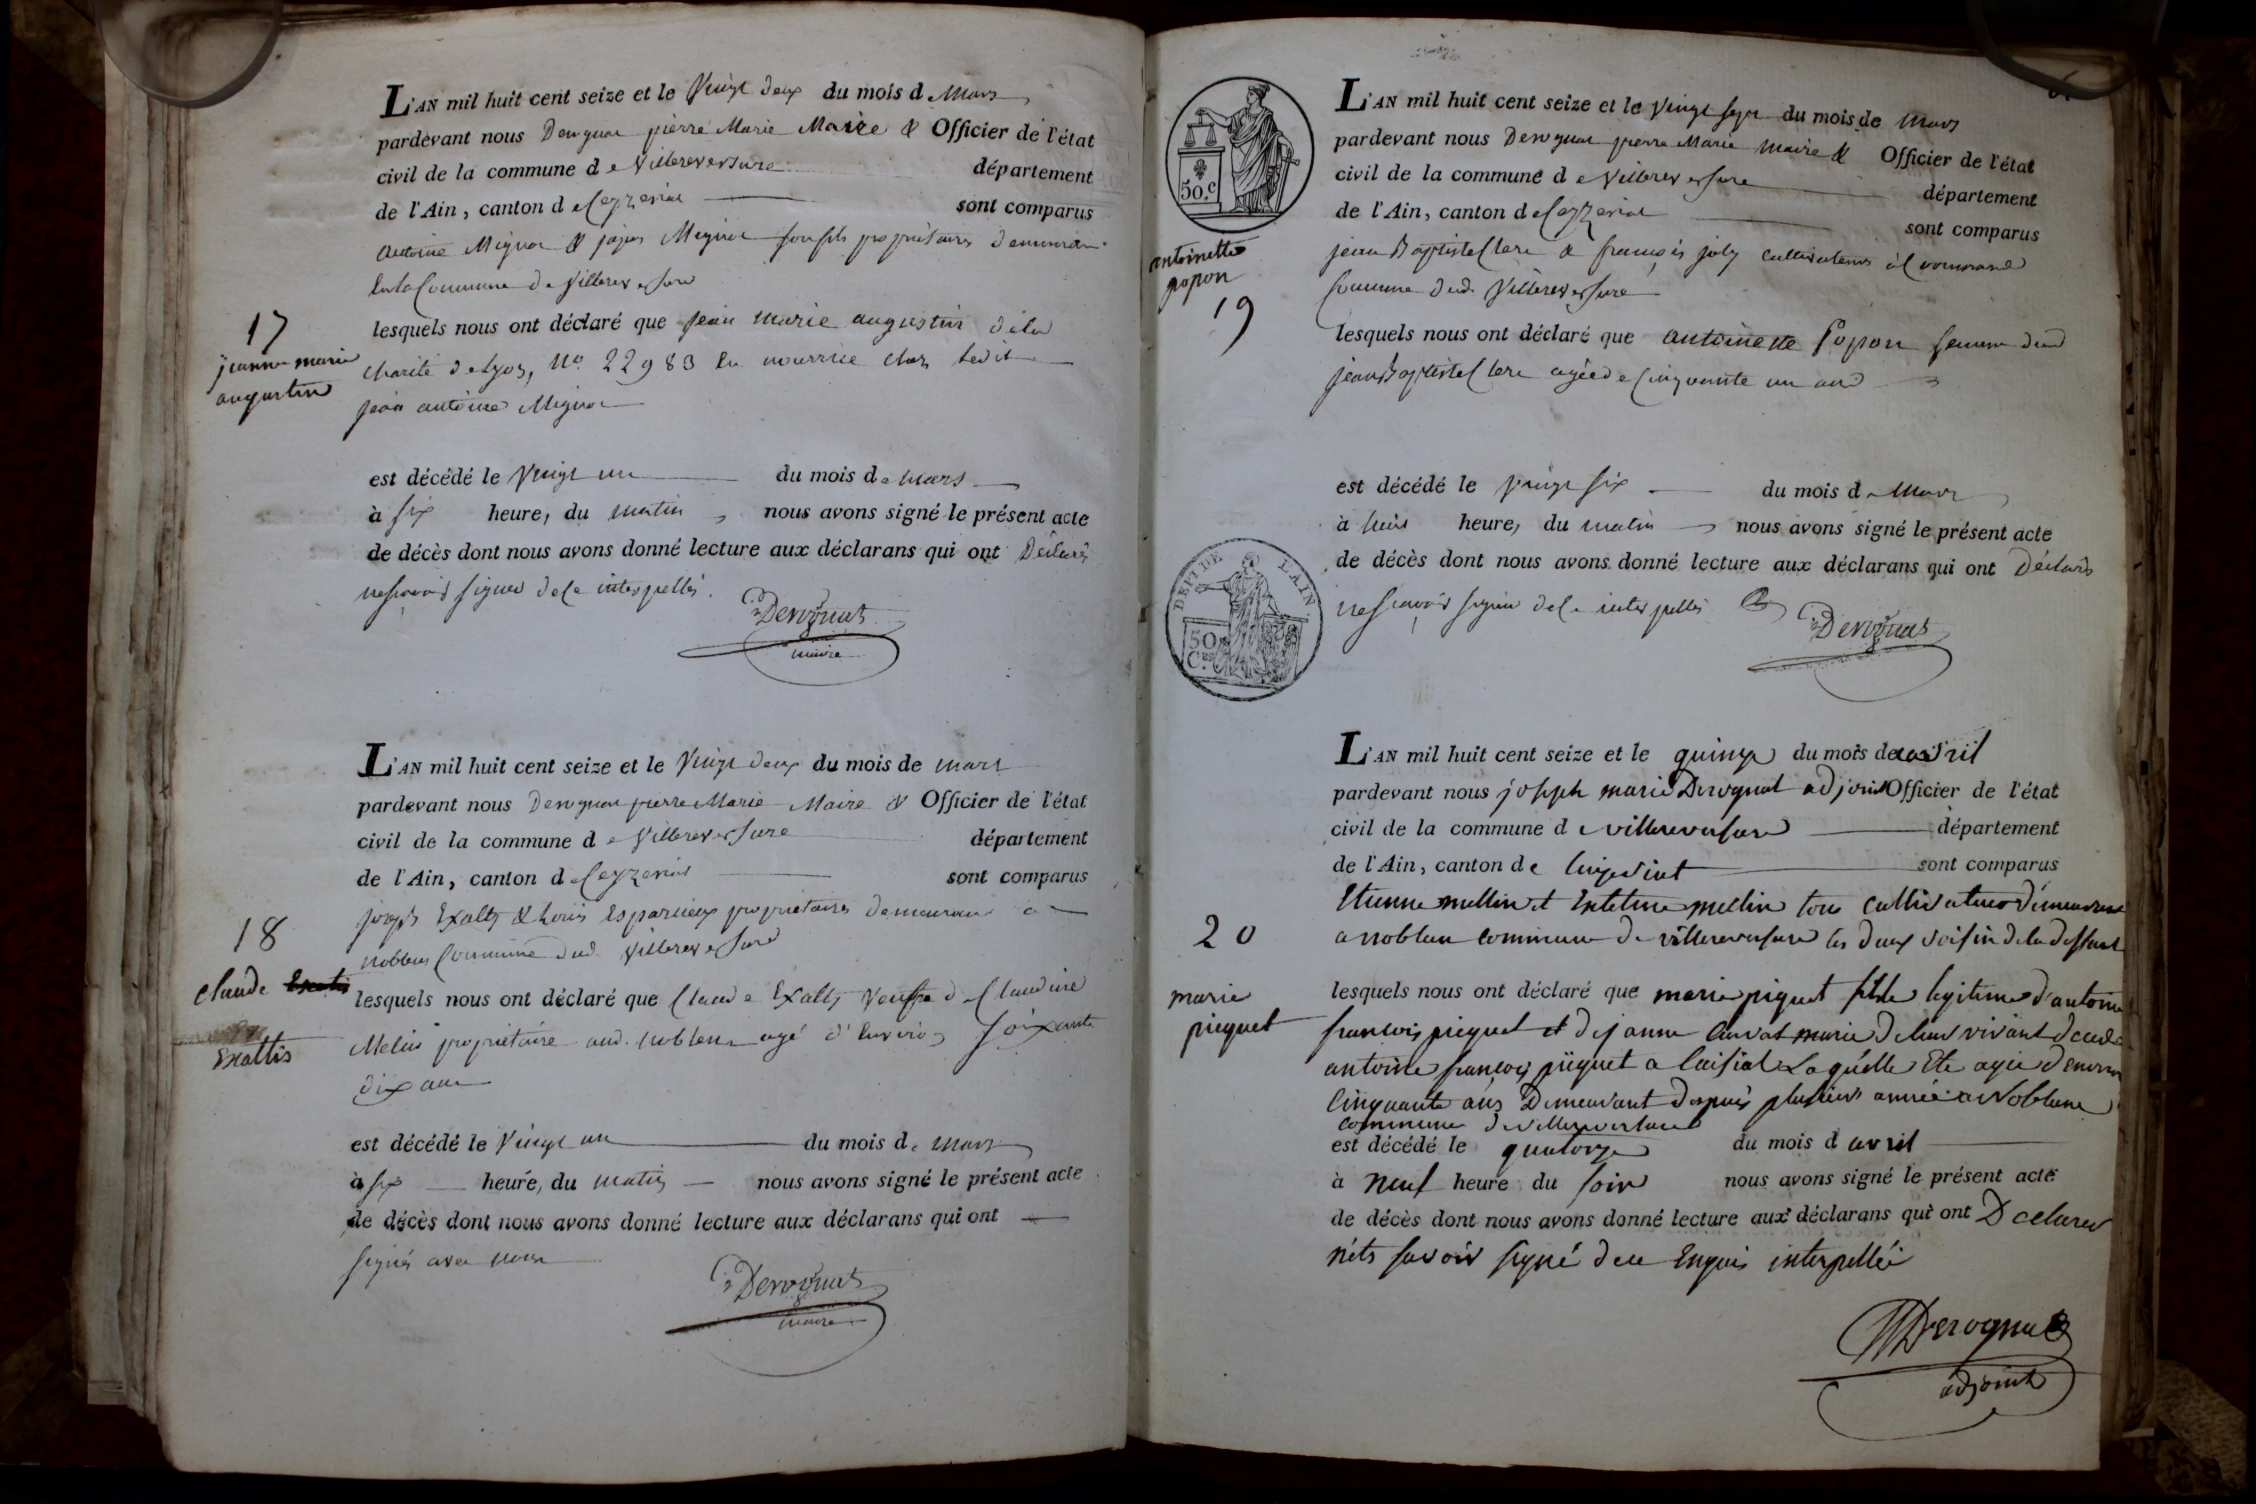 L'AN mil huit cent seize et le Vingt deux du mois d Mars
pardevant nous Derognat pierre Marie Maire & Officier de l'état
civil de la commune d e Villereversure département
de l'Ain, canton d e Ceyzeriat sont comparus
antoine Mignot & Mignot son fils propriétaires demeurant
Commune de Villereversure
17
lesquels nous ont déclaré que jean Marie augustin dela
jeanne marie
augustin
charité de Lyon, No. 22983 en nourrice chez ledit
jean antoine Mignot
est décédé le Vingt un du mois de mars
à six heure, du matin, nous avons signé le présent acte
de décès dont nous avons donné lecture aux déclarans qui ont Déclarés
ne sçavoir signer de ce interpellés.
Derognat
maire
L'AN mil huit cent seize et le Vingt deux du mois de mars
pardevant nous Derognat pierre Marie Maire & Officier de l'état
civil de la commune d e Villereversure département
de l'Ain, canton d e Ceyzeriat sont comparus
joseph Exalty & Louis Esparcieux propriétaires demeurant a
noblens Commune dud. Villereversure
18
claude
Exaltis
lesquels nous ont déclaré que Claude Exalty Veuf de Claudine
Melin propriétaire aud. noblens agé d'environ soixante
dix ans
est décédé le Vingt un du mois de mars
à six heure, du matin nous avons signé le présent acte
de décès dont nous avons donné lecture aux déclarans qui ont
signés avec nous
Derognat
maire
50.c
L'AN mil huit cent seize et le Vingt sept du mois de Mars
pardevant nous Derognat pierre Marie maire & Officier de l'état
civil de la commune d e Villereversure département
de l'Ain, canton d e Ceyzeriat sont comparus
antoinette
popon
19
jean Baptiste Clerc & françois joly cultivateurs à
Commune dud. Villereversure
lesquels nous ont déclaré que antoinette Popon femme dud
jean Baptiste Clerc agée de Cinquante un ans
est décédé le vingt six du mois d e Mars
à huit heure, du matin nous avons signé le présent acte
de décès dont nous avons donné lecture aux déclarans qui ont Déclarés
DEBIT DE L'AIN
50
Ces
ne sçavoir signer de ce interpellés
Derognat
L'AN mil huit cent seize et le quinze du mois de avril
pardevant nous joseph marie Derognat adjoint Officier de l'état
civil de la commune d e villereversure département
de l'Ain, canton de sont comparus
Etienne mellin et mellin tous cultivateurs demeurant
20
a noblens commune de villereversure les deux voisin de la deffunt
marie
piequet
lesquels nous ont déclaré que marie piquet fille legitime d'antoine
francois piequet et de janne marie de leur vivant
antoine françois piequet a Laquelle Ete agée d'environ
Cinquante ans Demeurant depuis plusieurs année a Noblens
commune de villereversure
est décédé le quatorze du mois d avril
à neuf heure du soir nous avons signé le présent acte
de décès dont nous avons donné lecture aux déclarans qui ont Declarer
savoir signé de ce Enquis interpellée
Derognat
adjoint